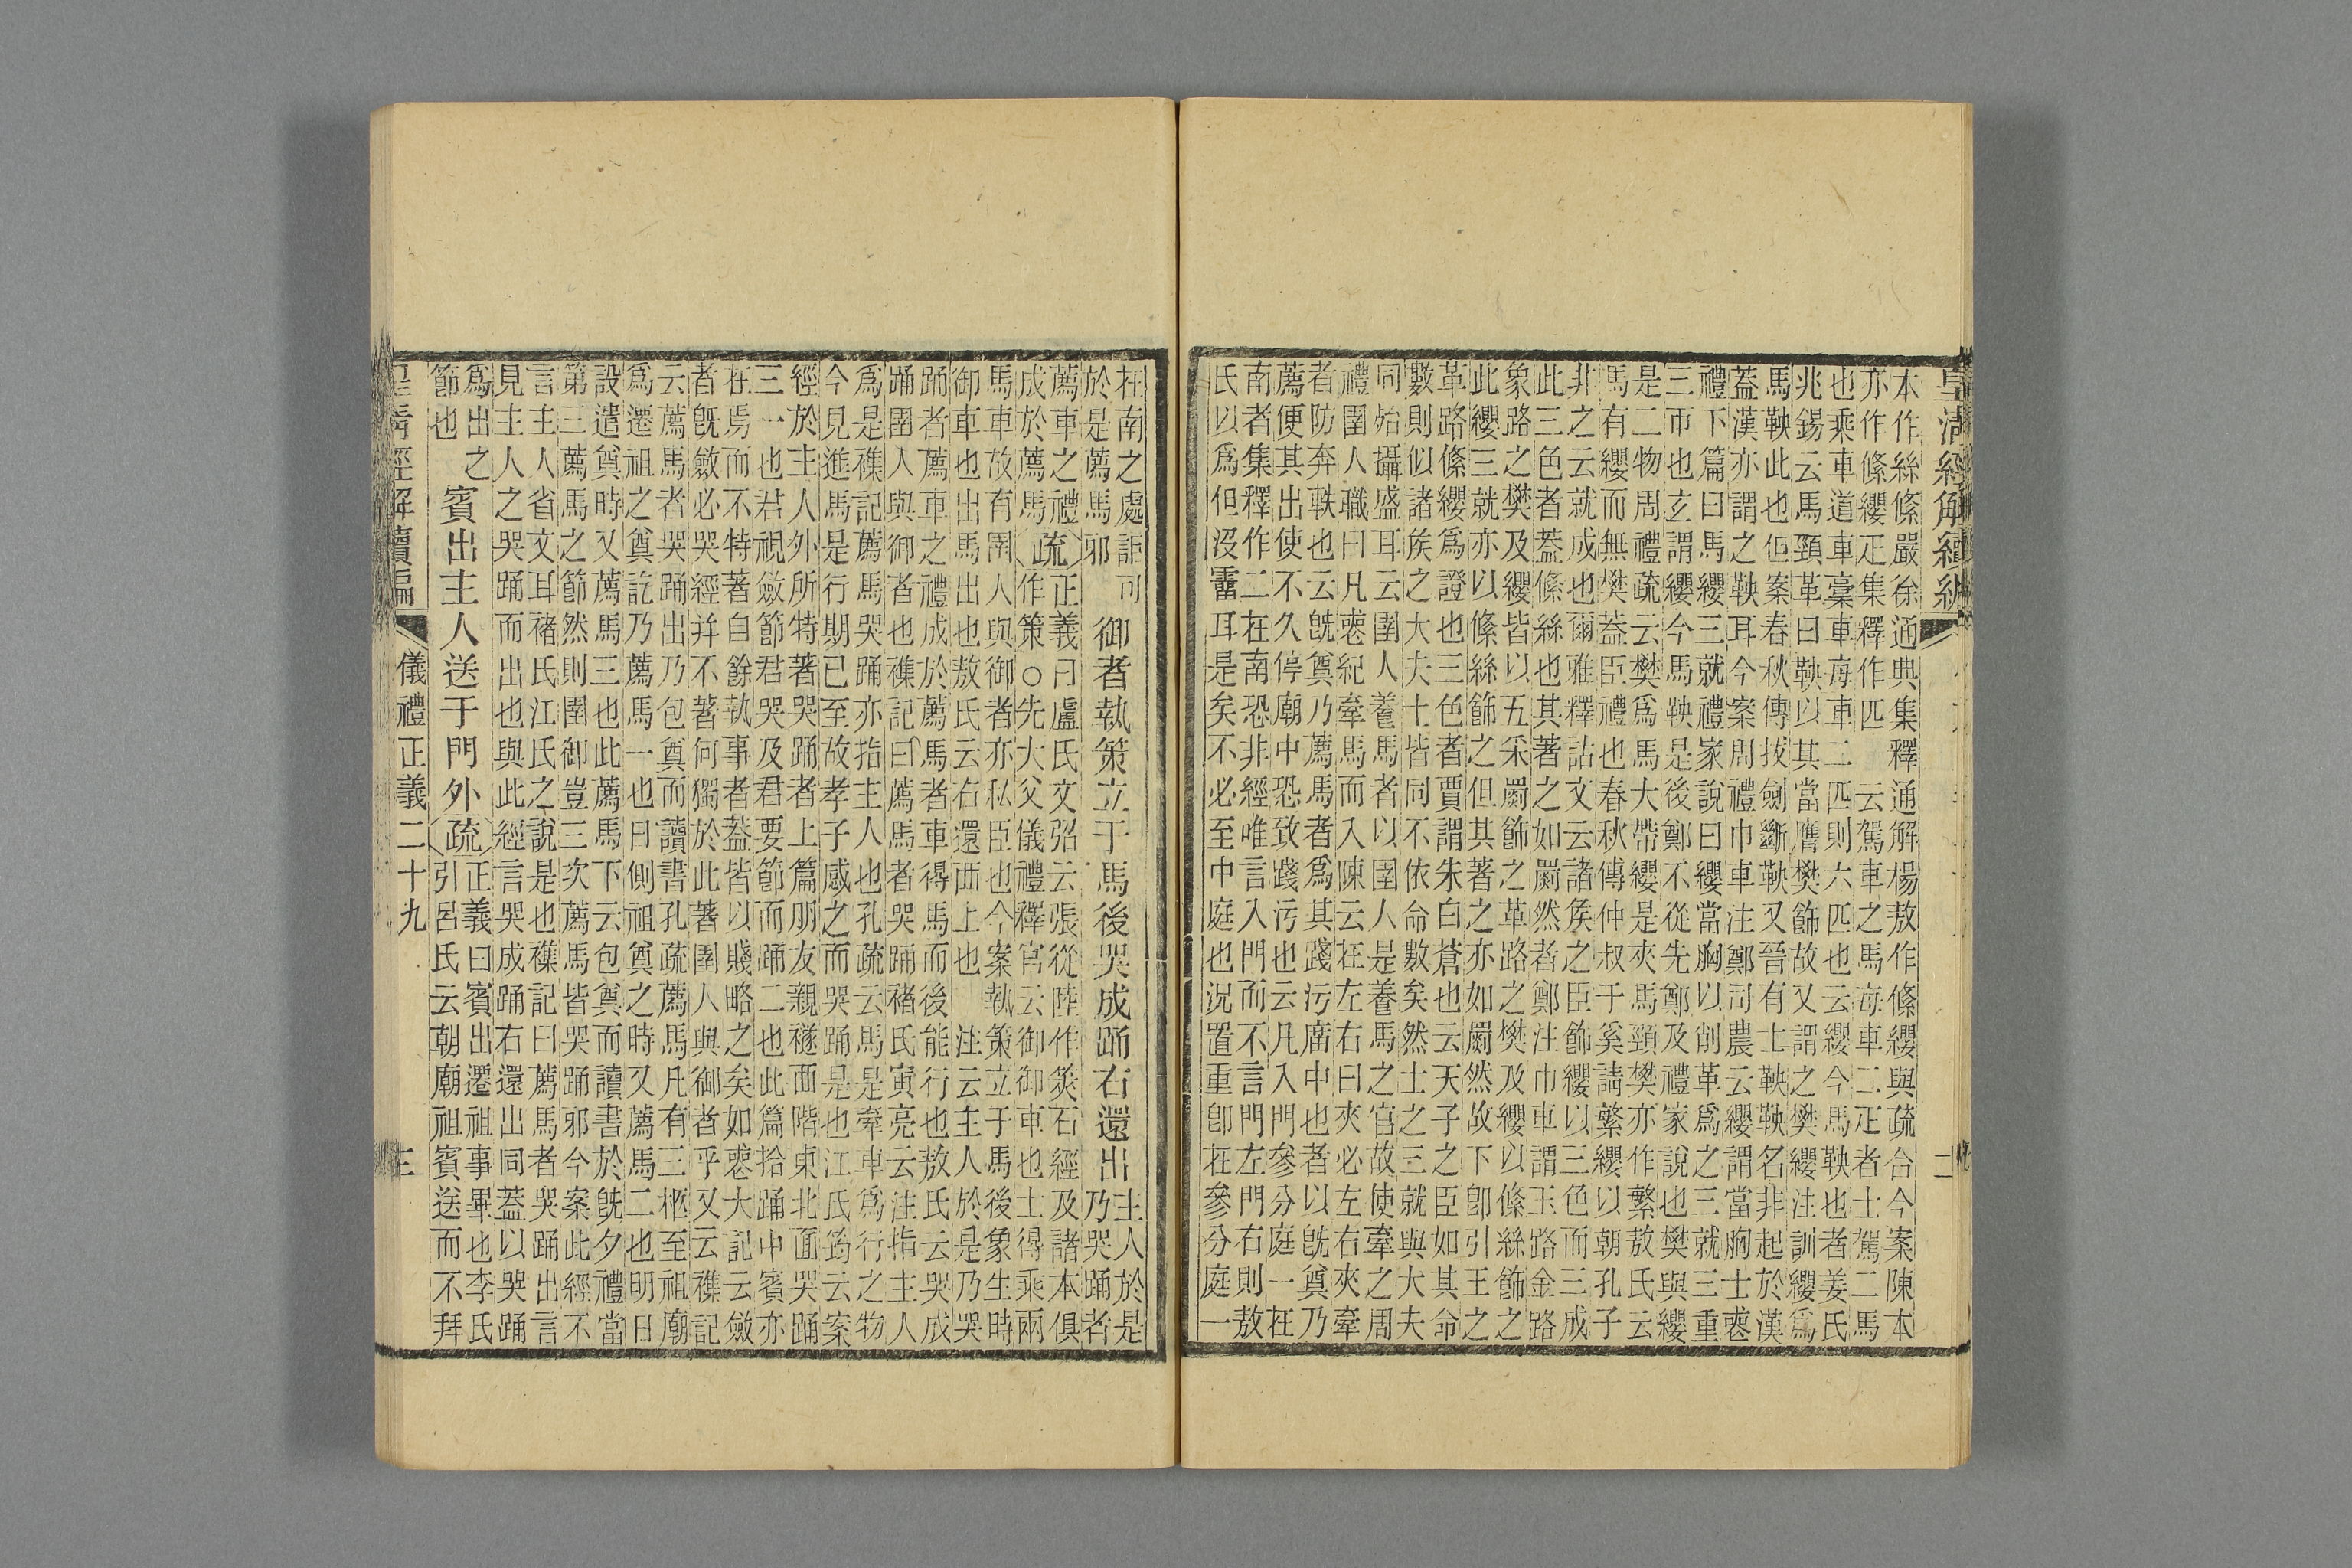 皇清經解續編
二
本作絲絛嚴徐通典集釋通解楊敖作絛纓與疏合今案陳本
亦作絛纓疋集釋作匹 云駕車之馬每車二疋者士駕二馬
也乘車道車稾車每車二匹則六匹也云纓今馬鞅也者姜氏
兆錫云馬頸革曰鞅以其當膺樊飾故又謂之樊纓注訓纓爲
馬鞅此也但案春秋傳拔劍斷鞅又晉有士鞅鞅名非起於漢
蓋漢亦謂之鞅耳今案周禮巾車注鄭司農云纓謂當胸士喪
禮下篇曰馬纓三就禮家說曰纓當胸以削革爲之三就三重
三帀也玄謂纓今馬鞅是後鄭不從先鄭及禮家說也樊與纓
是二物周禮疏云樊爲馬大帶纓是夾馬頸樊亦作繁敖氏云
馬有纓而無樊蓋臣禮也春秋傳仲叔于奚請繁纓以朝孔子
非之云就成也爾雅釋詁文云諸矦之臣飾纓以三色而三成
此三色者蓋絛絲也其著之如罽然者鄭注巾車謂玉路金路
象路之樊及纓皆以五采罽飾之革路之樊及纓以絛絲飾之
此纓三就亦以絛絲飾之但其著之亦如罽然故下卽引王之
革路絛纓爲證也三色者賈謂朱白蒼也云天子之臣如其命
數則似諸矦之大夫士皆同不依命數矣然士之三就與大夫
同殆攝盛耳云圉人養馬者以圉人是養馬之官故使牽之周
禮圉人職曰凡喪紀牽馬而入陳云在左右曰夾必左右夾牽
者防奔軼也云旣奠乃薦馬者爲其踐污廟中也者以旣奠乃
薦便其出使不久停廟中恐致踐污也云凡入門參分庭一在
南者集釋作二在南恐非經唯言入門而不言門左門右則敖
氏以爲但沒霤耳是矣不必至中庭也況置重卽在參分庭一
在南之處詎可
於是薦馬邪
御者執策立于馬後哭成踊右還出
主人於是
乃哭踊者
薦車之禮
成於薦馬
疏
正義曰盧氏文弨云張從陸作筴石經及諸本俱
作策○先大父儀禮釋官云御御車也士得乘兩
馬車故有圉人與御者亦私臣也今案執策立于馬後象生時
御車也出馬出也敖氏云右還西上也 注云主人於是乃哭
踊者薦車之禮成於薦馬者車得馬而後能行也敖氏云哭成
踊圉人與御者也襍記曰薦馬者哭踊褚氏寅亮云注指主人
爲是襍記薦馬哭踊亦指主人也孔疏云馬是牽車爲行之物
今見進馬是行期已至故孝子感之而哭踊是也江氏筠云案
經於主人外所特著哭踊者上篇朋友親襚西階東北面哭踊
三一也君視斂節君哭及君要節而踊二也此篇拾踊中賓亦
在焉而不特著自餘執事者蓋皆以賤略之矣如喪大記云斂
者旣斂必哭經幷不著何獨於此著圉人與御者乎又云襍記
云薦馬者哭踊出乃包奠而讀書孔疏薦馬凡有三柩至祖廟
爲遷祖之奠訖乃薦馬一也日側祖奠之時又薦馬二也明日
設遣奠時又薦馬三也此薦馬下云包奠而讀書於旣夕禮當
第三薦馬之節然則圉御豈三次薦馬皆哭踊邪今案此經不
言主人省文耳褚氏江氏之說是也襍記曰薦馬者哭踊出言
見主人之哭踊而出也與此經言哭成踊右還出同蓋以哭踊
爲出之
節也
賓出主人送于門外
疏
正義曰賓出遷祖事畢也李氏
引呂氏云朝廟祖賓送而不拜
皇清經解續編
儀禮正義二十九
三